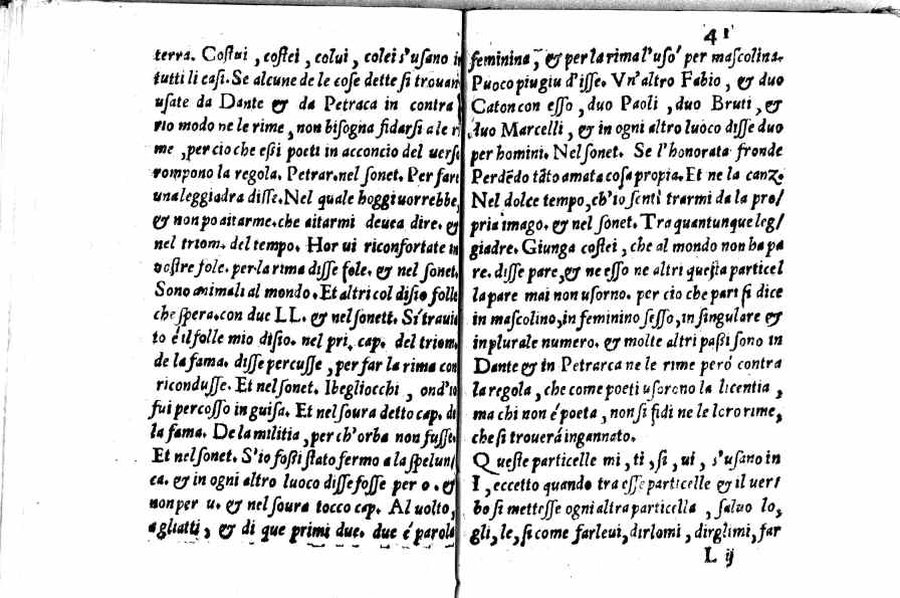 terra. Costui, costei, colui, colei s'usano in
tutti li casi. Se alcune de le cose dette si trouan
usate da Dante & da Petraca in contra
rio modo ne le rime, non bisogna fidarsi a le ri
me, per cio che essi poeti in acconcio del uerso
rompono la regola. Petrar. nel sonet. Per fare
una leggiadra disse. Nel quale hoggi uorrebbe,
& non po aitarme. che aitarmi deuea dire. &
nel triom. del tempo. Hor ui riconfortate in
vostre fole. per la rima disse fole. & nel sonet.
Sono animali al mondo. Et altri col disio folle
che spera. con due LL. & nel sonett. Sí trauia
to é il folle mio disio. nel pri. cap. del triom.
de la fama. disse percusse, per far la rima con
ricondusse. Et nel sonet. I begliocchi, ond'io
fui percosso in guisa. Et nel soura detto cap. di
la fama. De la militia, per ch'orba non fusse.
Et nel sonet. S'io fossi stato fermo a la spelun
ca. & in ogni altro luoco disse fosse per o. &
non per u. & nel soura tocco cap. Al uolto,
agliatti, & di que primi due. due é parola
41
feminina, & per la rima l'usó per mascolina.
Puoco piu giu disse. Vn'altro Fabio, & duo
Caton con esso, duo Paoli, duo Bruti, &
duo Marcelli, & in ogni altro luoco disse duo
per homini. Nel sonet. Se l'honorata fronde
Perdẽdo tãto amata cosa propia. Et ne la canz.
Nel dolce tempo, ch'io sentí trarmi da la pro/
pria imago. & nel sonet. Tra quantunque leg/
giadre. Giunga costei, che al mondo non ha pa
re. disse pare, & ne esso ne altri questa particel
la pare mai non usorno. per cio che pari si dice
in mascolino, in feminino sesso, in singulare &
in plurale numero. & molte altri passi sono in
Dante & in Petrarca ne le rime peró contra
la regola, che come poeti usorono la licentia,
ma chi non é poeta, non si fidi ne le loro rime,
che si trouerá ingannato.
Queste particelle mi, ti, si, ui, s'usano in
I, eccetto quando tra esse particelle & il uer/
bo si mettesse ogni altra particella, saluo lo,
gli, le, si come farleui, dirlomi, dirglimi, far
L ij